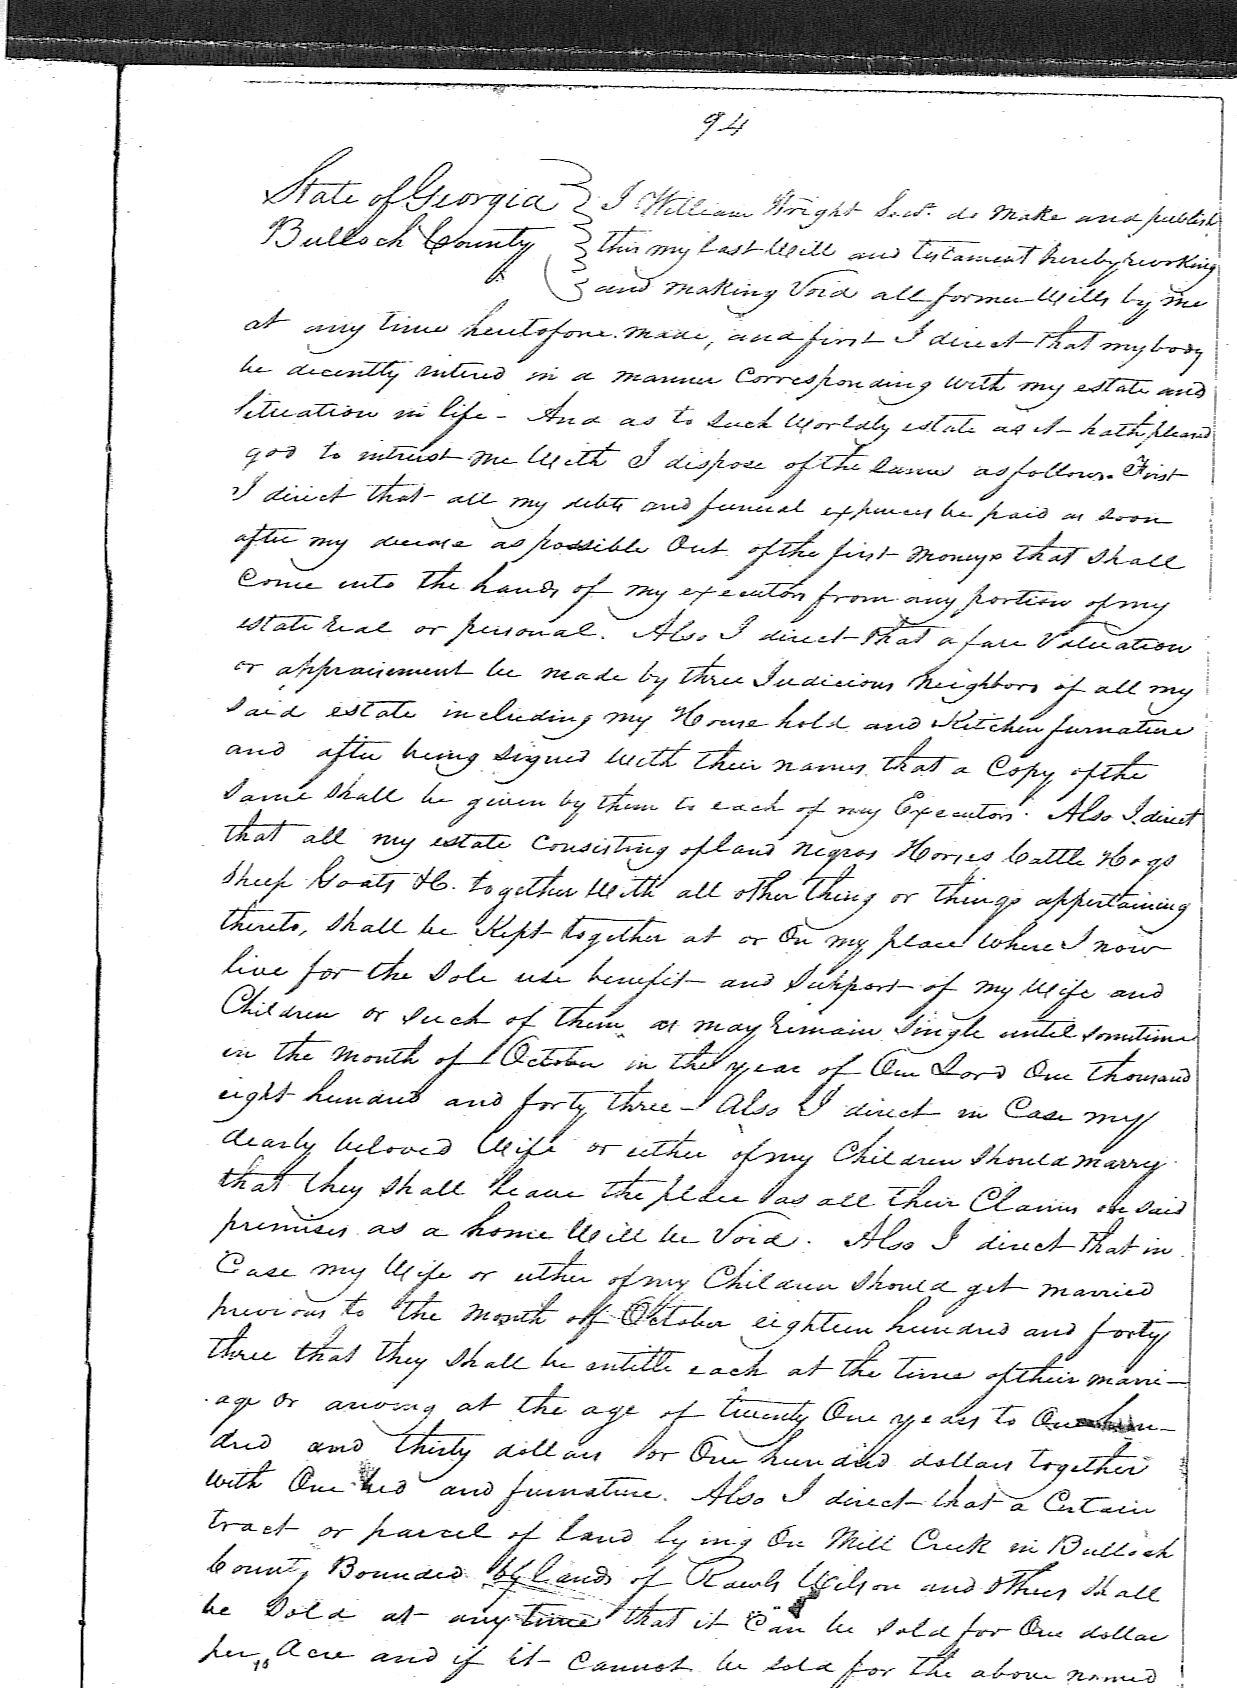 94
State of Georgia } I William Wright Senr. do make and publish
Bulloch County } this my last Will and testament hereby revoking
and making Void all former Wills by me
at any time heretofore made, and first I direct that my body
be decently intered in a manner Corresponding with my estate and
Situation in life - And as to such Worldly estate as it hath pleased
god to intrust me With I dispose of the same as follows. First
I direct that all my debts and funeral expences be paid as soon
after my decease as possible Out of the first moneys that shall
Come into the hands of my executors from any portion of my
estate real or personal. Also I direct that a fare Valuation
or appraisement be made by three Judicious Neighbors of all my
said estate including my House hold and Kitchen furnature
and after being signed With their names that a Copy of the
Same shall be given by them to each of my Executors. Also I direct
that all my estate Consisting of land negros Horses Cattle Hogs
Sheep Goats &C. together With all other thing or things appertaining
thereto, shall be Kept together at or On my place Where I now
live for the sole use benefit and support of my Wife and
Children or such of them as may remain Single until sometime
in the month of October in the year of Our Lord One thousand
eight hundred and forty three - Also I direct in Case my
dearly beloved Wife or either of my Children should marry
that they shall leave the place as all their Claims on said
premises as a home Will be Void. Also I direct that in
Case my Wife or either of my Children should get married
previous to the month of October eighteen hundred and forty
three that they shall be entitle each at the time of their marri-
age or ariving at the age of twenty One years to One hun-
dred and thirty dollars or One hundred dollars together
with One bed and furnature. Also I direct that a Certain
tract or parcel of land lying On Mill Creek in Bulloch
County Bounded by lands of Rawls Wilson and others shall
be sold at any time that it Can be sold for One dollar
per Acre and if it Cannot be sold for the above named